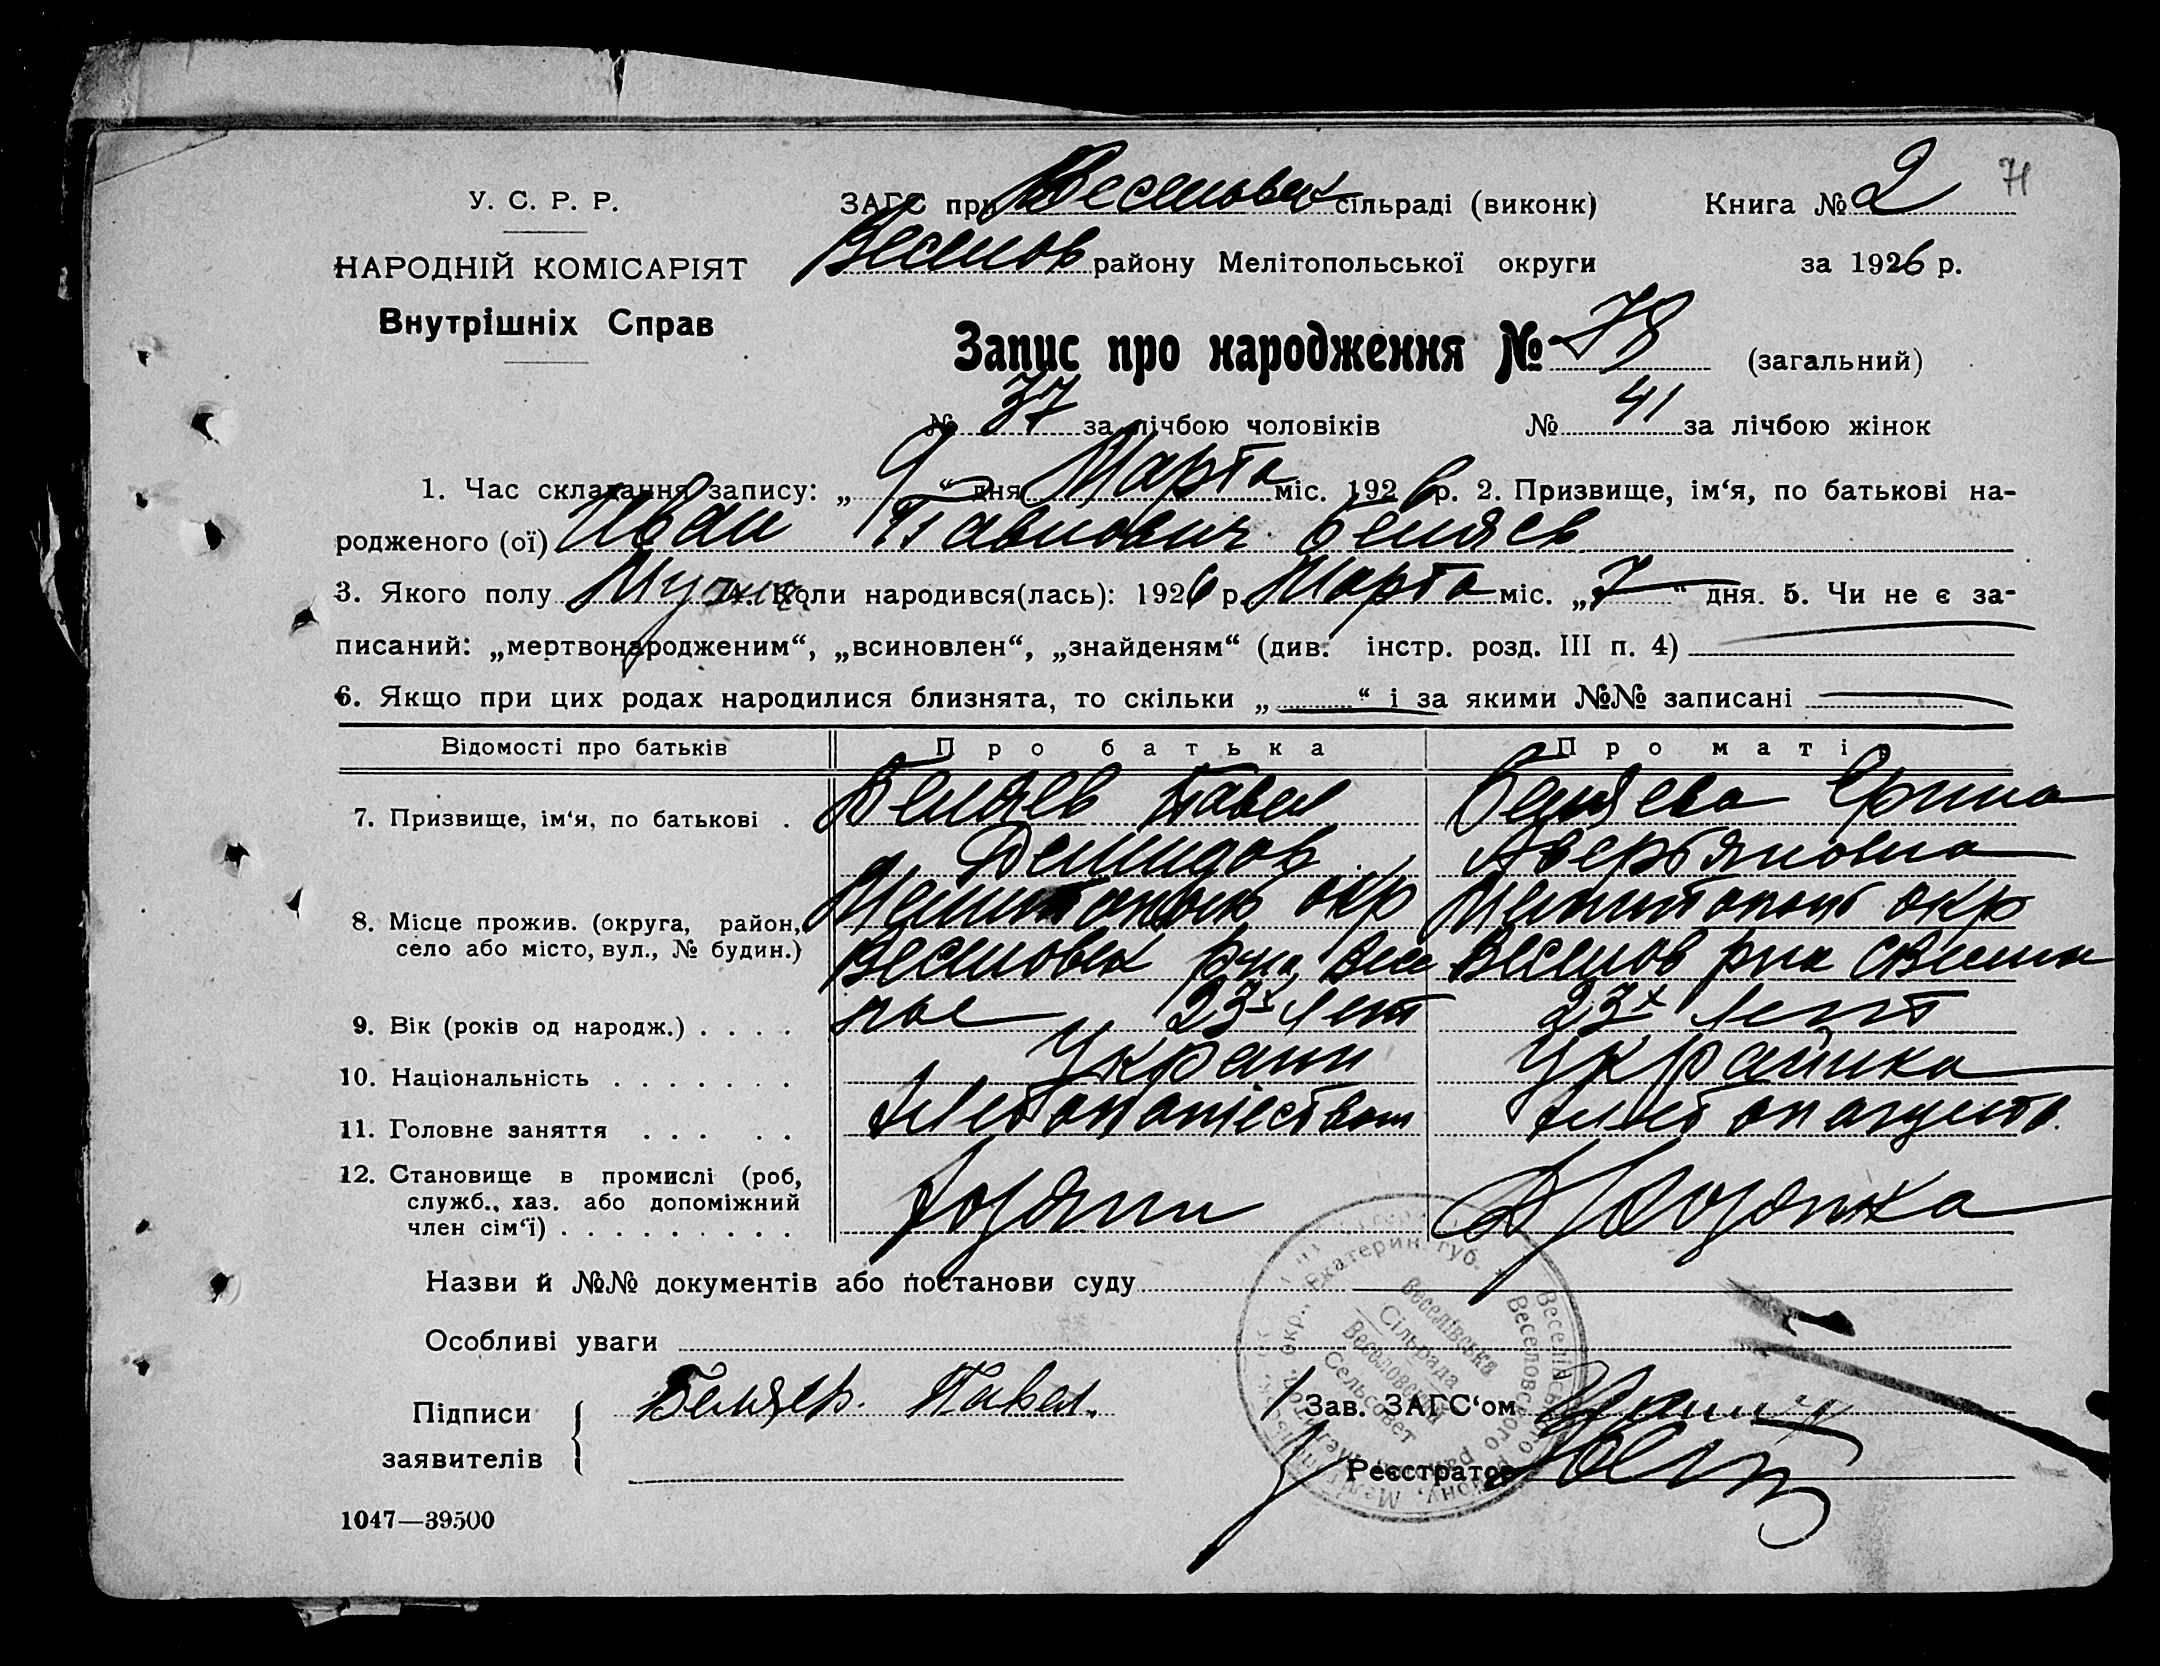 71
У. С. Р. Р.
ЗАГС при Веселовск сільраді (виконк)
Книга № 2
НАРОДНІЙ КОМІСАРІЯТ
Веселов району Мелітопольської округи
за 1926 р.
Внутрішніх Справ
Запис про народження № 78 (загальний)
№ 37 за лічбою чоловіків № 41 за лічбою жінок
1. Час складання запису: „ 9 “ дня Марта міс. 1926 р. 2. Призвище, ім‘я, по батькові на-
родженого (ої) Иван Павлович Беляев
3. Якого полу Мужск. 4. Коли народився(лась): 1926 р. Марта міс. „ 7 “ дня. 5. Чи не є за-
писаний: „мертвонародженим“, „всиновлен“, „знайденям“ (див. інстр. розд. III п. 4)
6. Якщо при цих родах народилися близнята, то скільки „ “ і за якими №№ записані
Відомості про батьків Про батька Про матір
7. Призвище, ім‘я, по батькові . Беляев Павел Беляева Ерина
Демидов Аверьяновна
8. Місце прожив. (округа, район, окр Мелитопол окр
село або місто, вул., № будин.) Веселовск рна, Весе Веселов рна
лое
9. Вік (років од народж.) . . . . 23х лет 23х лет
10. Національність . . . . . . . Украин Украинка
11. Головне заняття . . . . . Хлебопашеством
12. Становище в промислі (роб, Хозяин
служб., хаз. або допоміжний
член сім‘ї) . . . . . . . . .
Назви й №№ документів або постанови суду
Особливі уваги
Підписи Беляев. Павел.
заявителів
Зав. ЗАГС‘ом
Реєстратор
Екатерин. губ.
Веселівська
Сільрада
Веселовский
Сельсовет
1047—39500